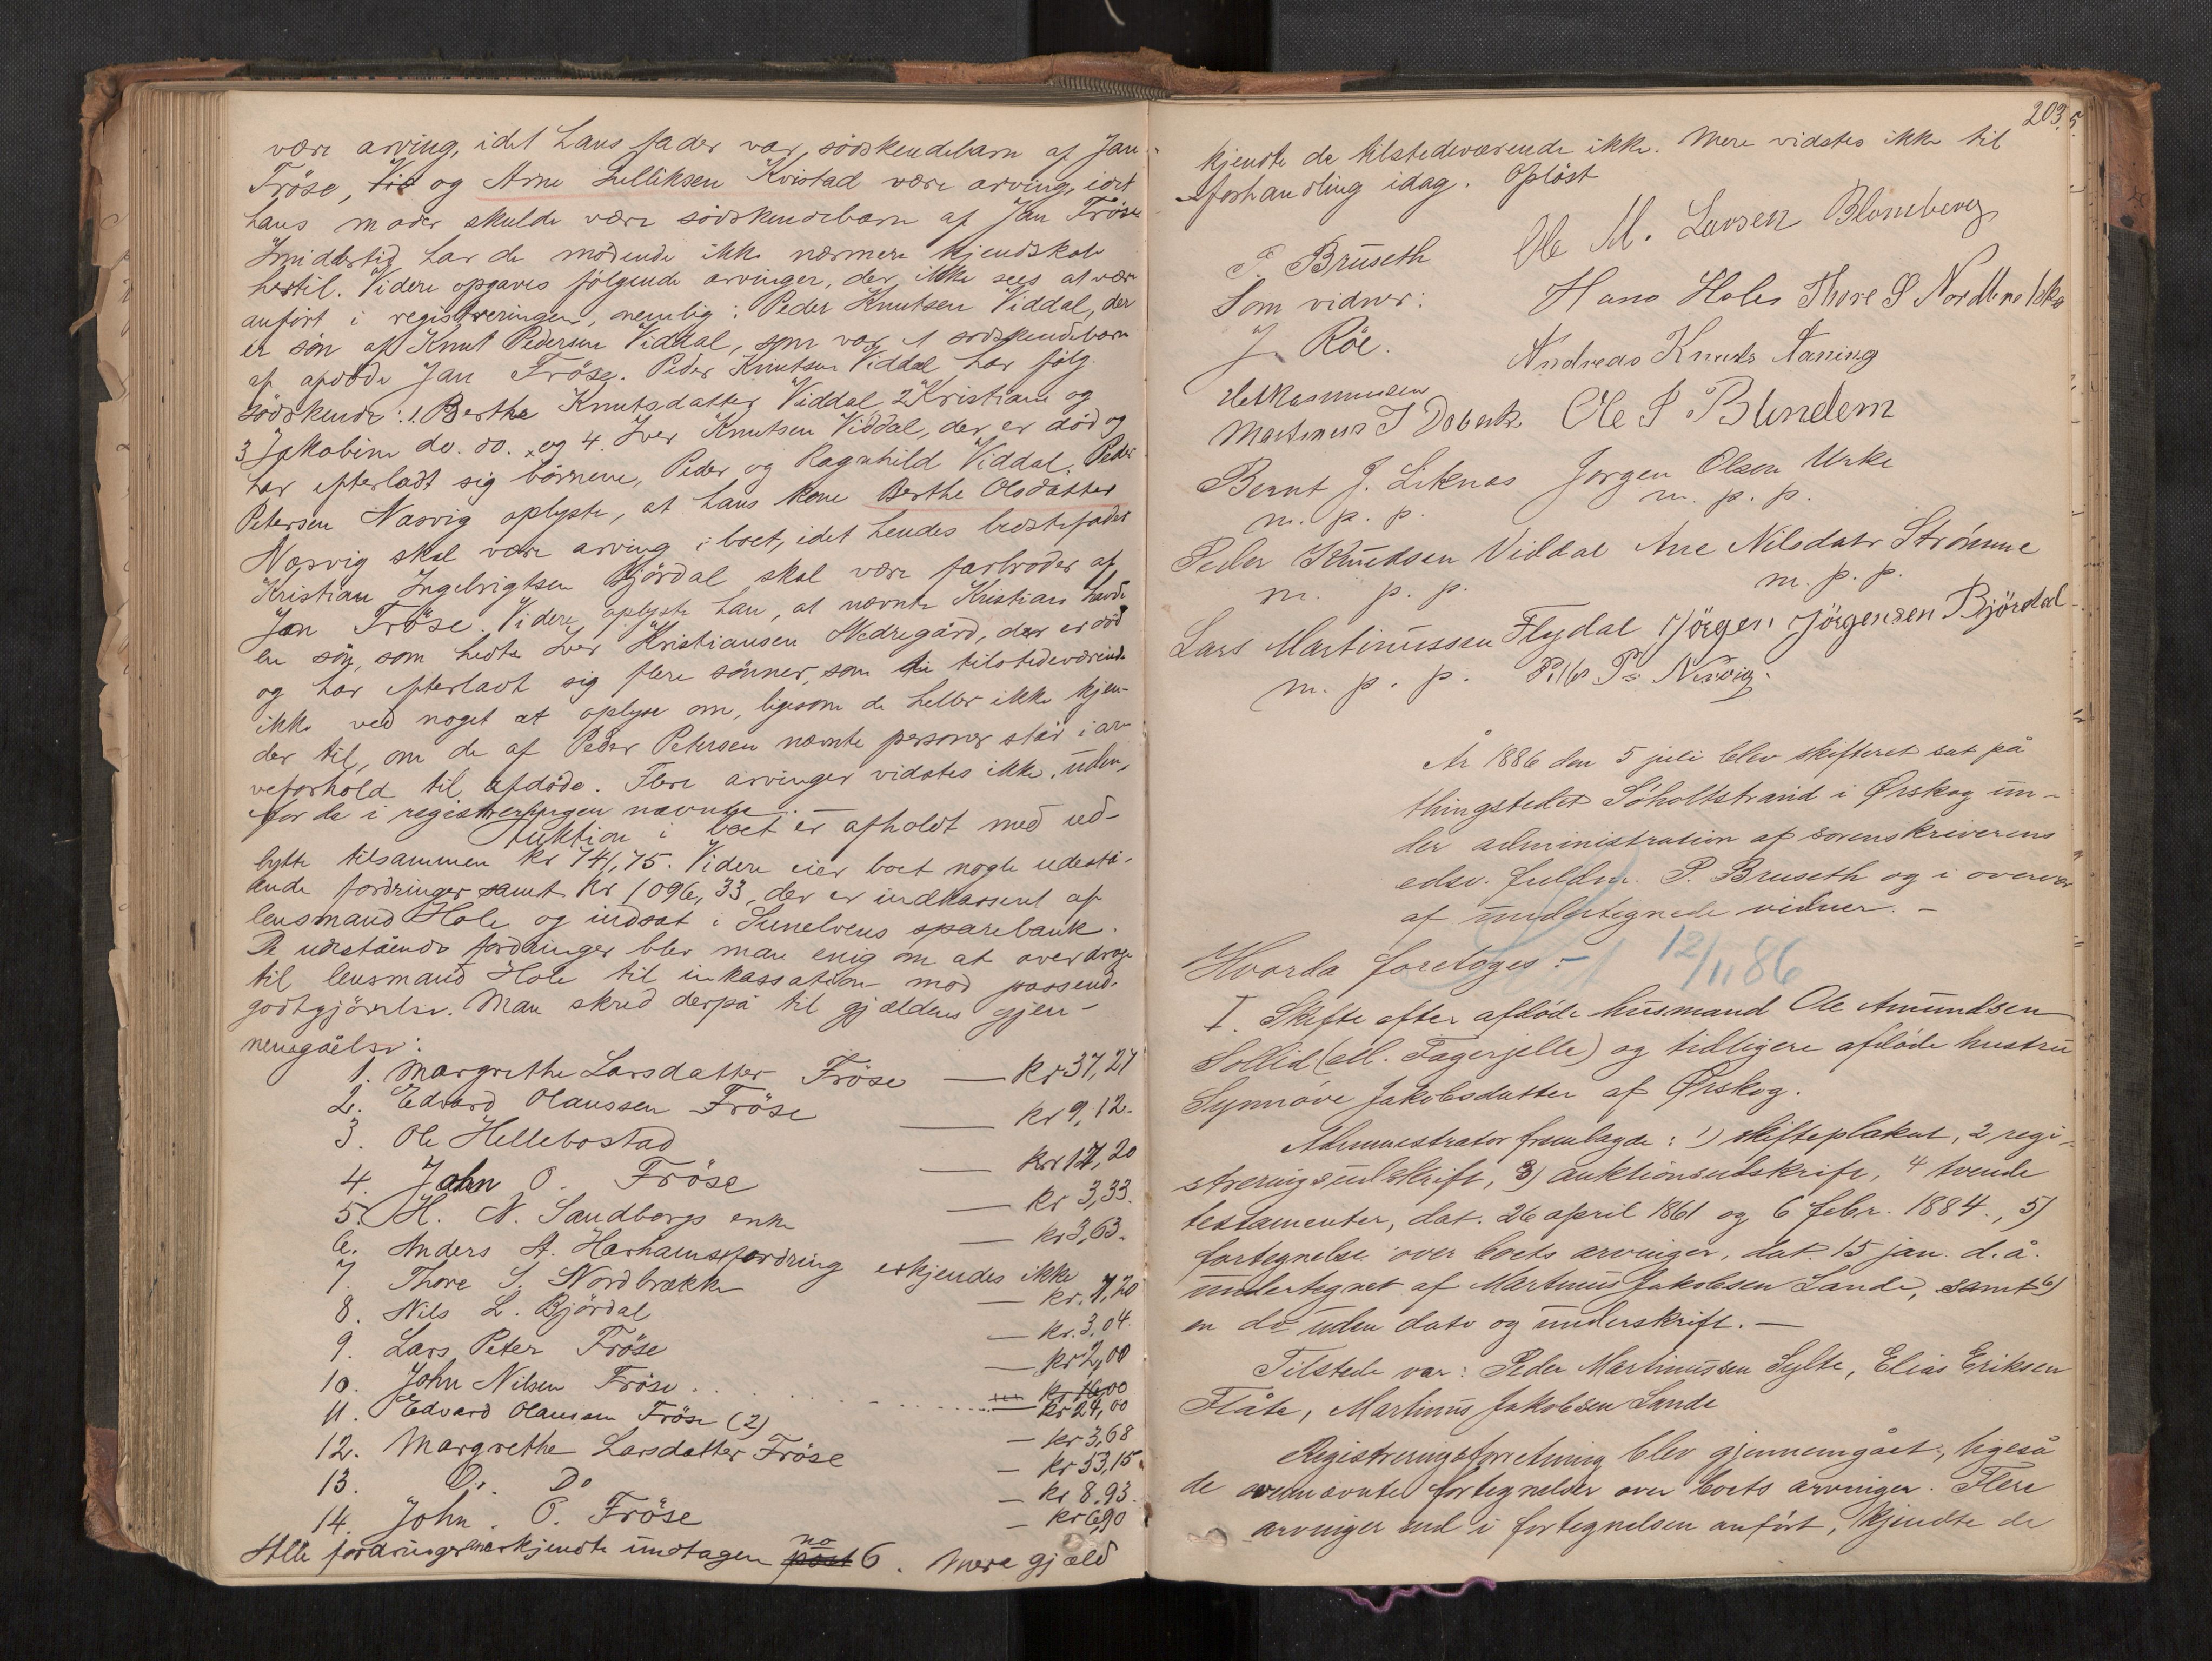 være arving, idet hans fader var sødskendebarn af Jan
Fröse, og Arne Kristad være arving, idet
hans moder skulde være södskendebarn af Jan Fröse
Imidlertid har de mödende ikke nærmere kjendskab
hertil. Videre opgaves fölgende arvinger, der ikke sees at være
anfört i registreringen, nemlig: Peder Knutsen Viddal, der
er sön af Knut Pedersen Viddal, som var 1 södskendebarn
af afdöde Jan Fröse. Peder Knutsen Viddal har fölg.
södskende: 1. Berthe Knutsdatter Viddal 2 Kristiane og
3 Jakobine do. do. og 4. Iver Knutsen Viddal, der er död og
har efterladt sig börnene, Peder og Ragnhild Viddal. Peder
Petersen Næsvig oplyste, at hans kone Berthe Olsdatter
Næsvig skal være arving i boet, idet hendes bedstefader
Kristian Ingebrigtsen Björdal skal være farbroder af
Jan Fröse. Videre oplyste han, at nævnte Kristian havde
en sön, som hedte Iver Kristiansen Nedregård, der er död
og har efterladt sig flere sönner, som de tilstedeværende
ikke ved noget at oplyse om, ligesom de heller ikke kjen-
der til, om de af Peder Petersen nævnte personer står i ar-
veforhold til afdöde. Flere arvinger vidstes ikke, uden-
for de i registreringen nævnte.
Auktion i boet er afholdt med ud-
bytte tilsammen kr 741,75. Videre eier boet nogle udestå-
ende fordringer samt kr 1096,33, der er indkasseret af
lensmand Hole og indsat i Sunelvens sparebank.
De udestående fordringer blev man enig om at overdrage
til lensmand Hole til inkassation mod passende
godtgjörelse. Man skred derpå til gjældens gjen-
nemgåelse:
1. Margrethe Larsdatter Fröse — kr 37,27
2. Edvard Olaussen Fröse — kr 9,12.
3. Ole Hellebostad — kr 17,20
4. John O. Fröse — kr 3,33.
5. H. N. Sandborgs enke — kr 3,63.
6. Anders A. Hærhams fordring erkjendes ikke
7. Thore S. Nordbrække — kr. 7,20
8. Nils L. Björdal — kr. 3,04.
9. Lars Peter Fröse — kr 2,00
10. John Nilsen Fröse — kr 16,00 kr 24,00
11. Edvard Olaussen Fröse (2) — kr 3,68
12. Margrethe Larsdatter Fröse — kr 53,15.
13. Do. Do — kr 8,93.
14. John O. Fröse — kr 6,90
Alle fordringer anerkjendte undtagen post no 6. Mere gjæld
203.
kjendte de tilstedeværende ikke. Mere vidstes ikke til
forhandling idag. Oplöst
P. Bruseth Ole M. Larsen Blomberg
Som vidner: Hans Hole Thore S Nordbrekke
J. Röe. Andreas Knuds
Rasmussen
Martinus J Ole P.
Bernt J. Liknes Jørgen Olsen Urke
m. p. p. m. p. p.
Peder Knudsen Viddal Ane Nilsdatr Strömme
m. p. p. m. p. p.
Lars Martinussen Flydal Jörgen Jörgensen Björdal
m. p. p. P. Næsvig.
År 1886 den 5 juli blev skifteret sat på
thingstedet Söholtstrand i Ørskog un-
der administration af sorenskriverens
edsv. fuldm. P. Bruseth og i overvær
af undertegnede vidner. –
Hvorda foretoges:–
12/11 86
I. Skifte efter afdöde husmand Ole Amundsen
Sollid (ell. Fagerjelle) og tidligere afdöde hustru
Synnöve Jakobsdatter af Ørskog.
Administrator fremlagde: 1) skifteplakat, 2 regi-
streringsudskrift, 3) auktionsudskrift, 4 tvende
testamenter, dat. 26 april 1861 og 6 febr. 1884., 5)
fortegnelse over boets arvinger, dat. 15 jan. d. å.
undertegnet af Martinus Jakobsen Sande, samt 6)
en do uden dato og underskrift. –
Tilstede var: Peder Martinussen Sylte, Elias Eriksen
Flåte, Martinus Jakobsen Sande
Registreringsforretning blev gjennemgået, ligeså
de ovennævnte fortegnelser over boets arvinger. Flere
arvinger end i fortegnelsen anfört, kjendte de